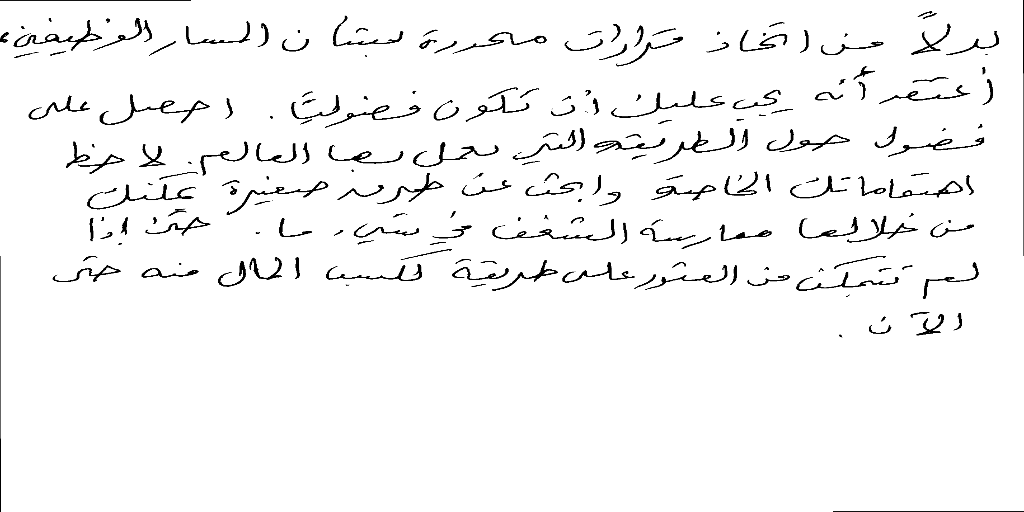 بدلاً من اتخاذ قرارات محددة بشأن المسار الوظيفي،
أعتقد أنه يجب عليك أن تكون فضوليًا. احصل على
فضول حول الطريقة التي يعمل بها العالم. لاحظ
اهتماماتك الخاصة وابحث عن طرق صغيرة يمكنك
من خلالها ممارسة الشغف في شيء ما. حتى إذا
لم تتمكن من العثور على طريقة لكسب المال منه حتى
الآن.